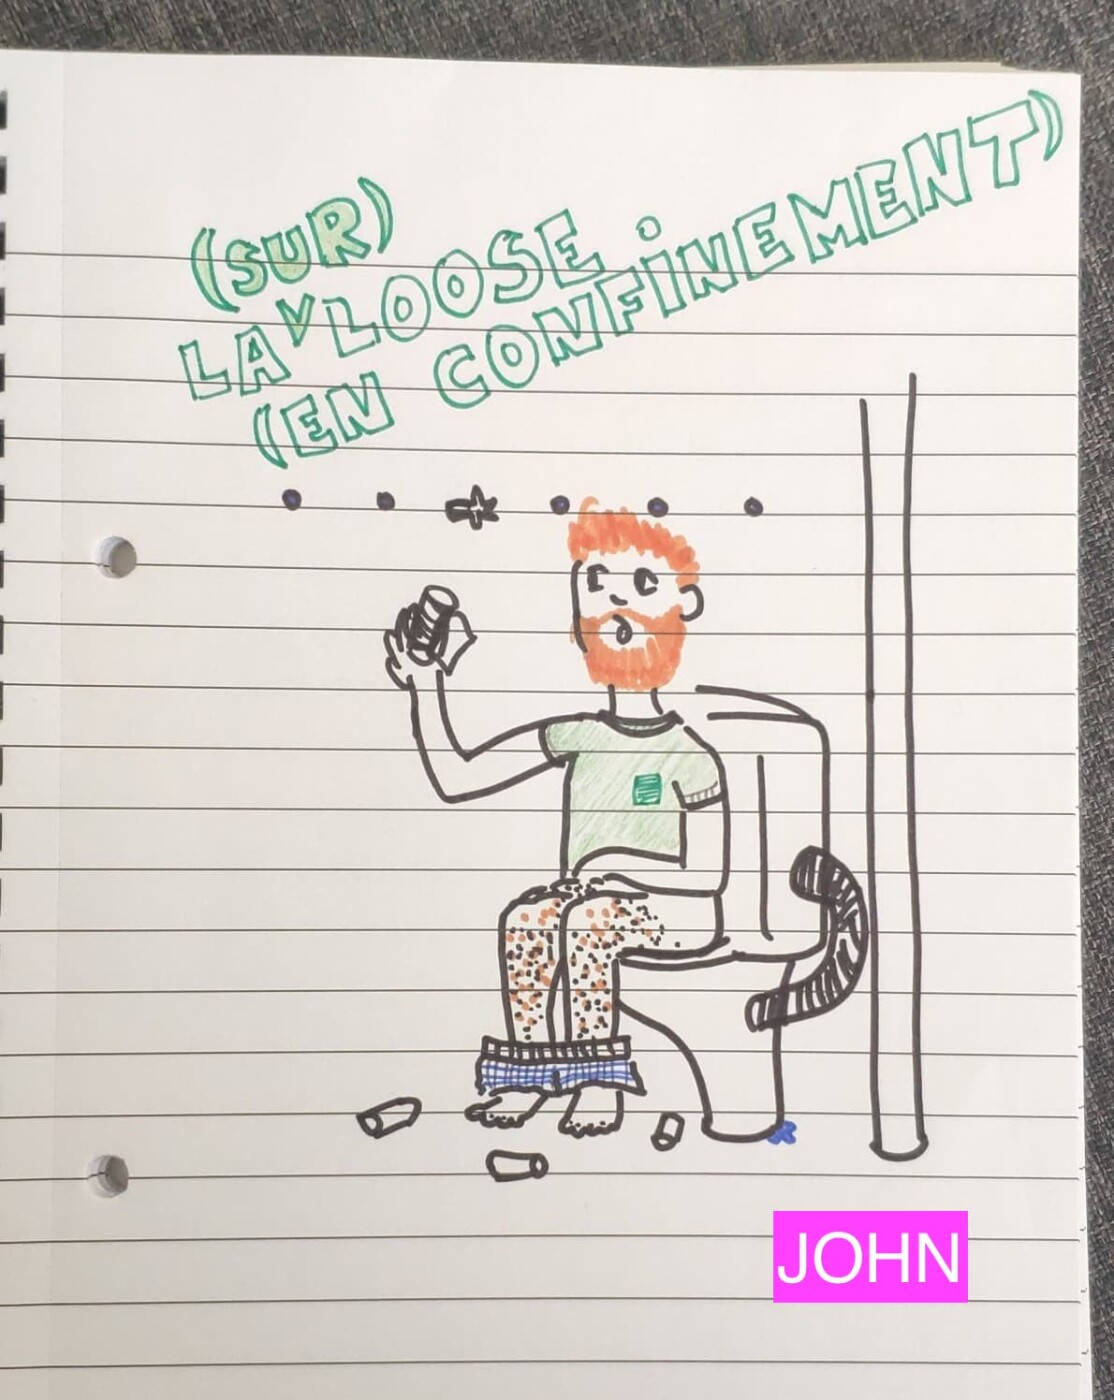 (SUR)
LA LOOSE
(EN CONFINEMENT)
JOHN